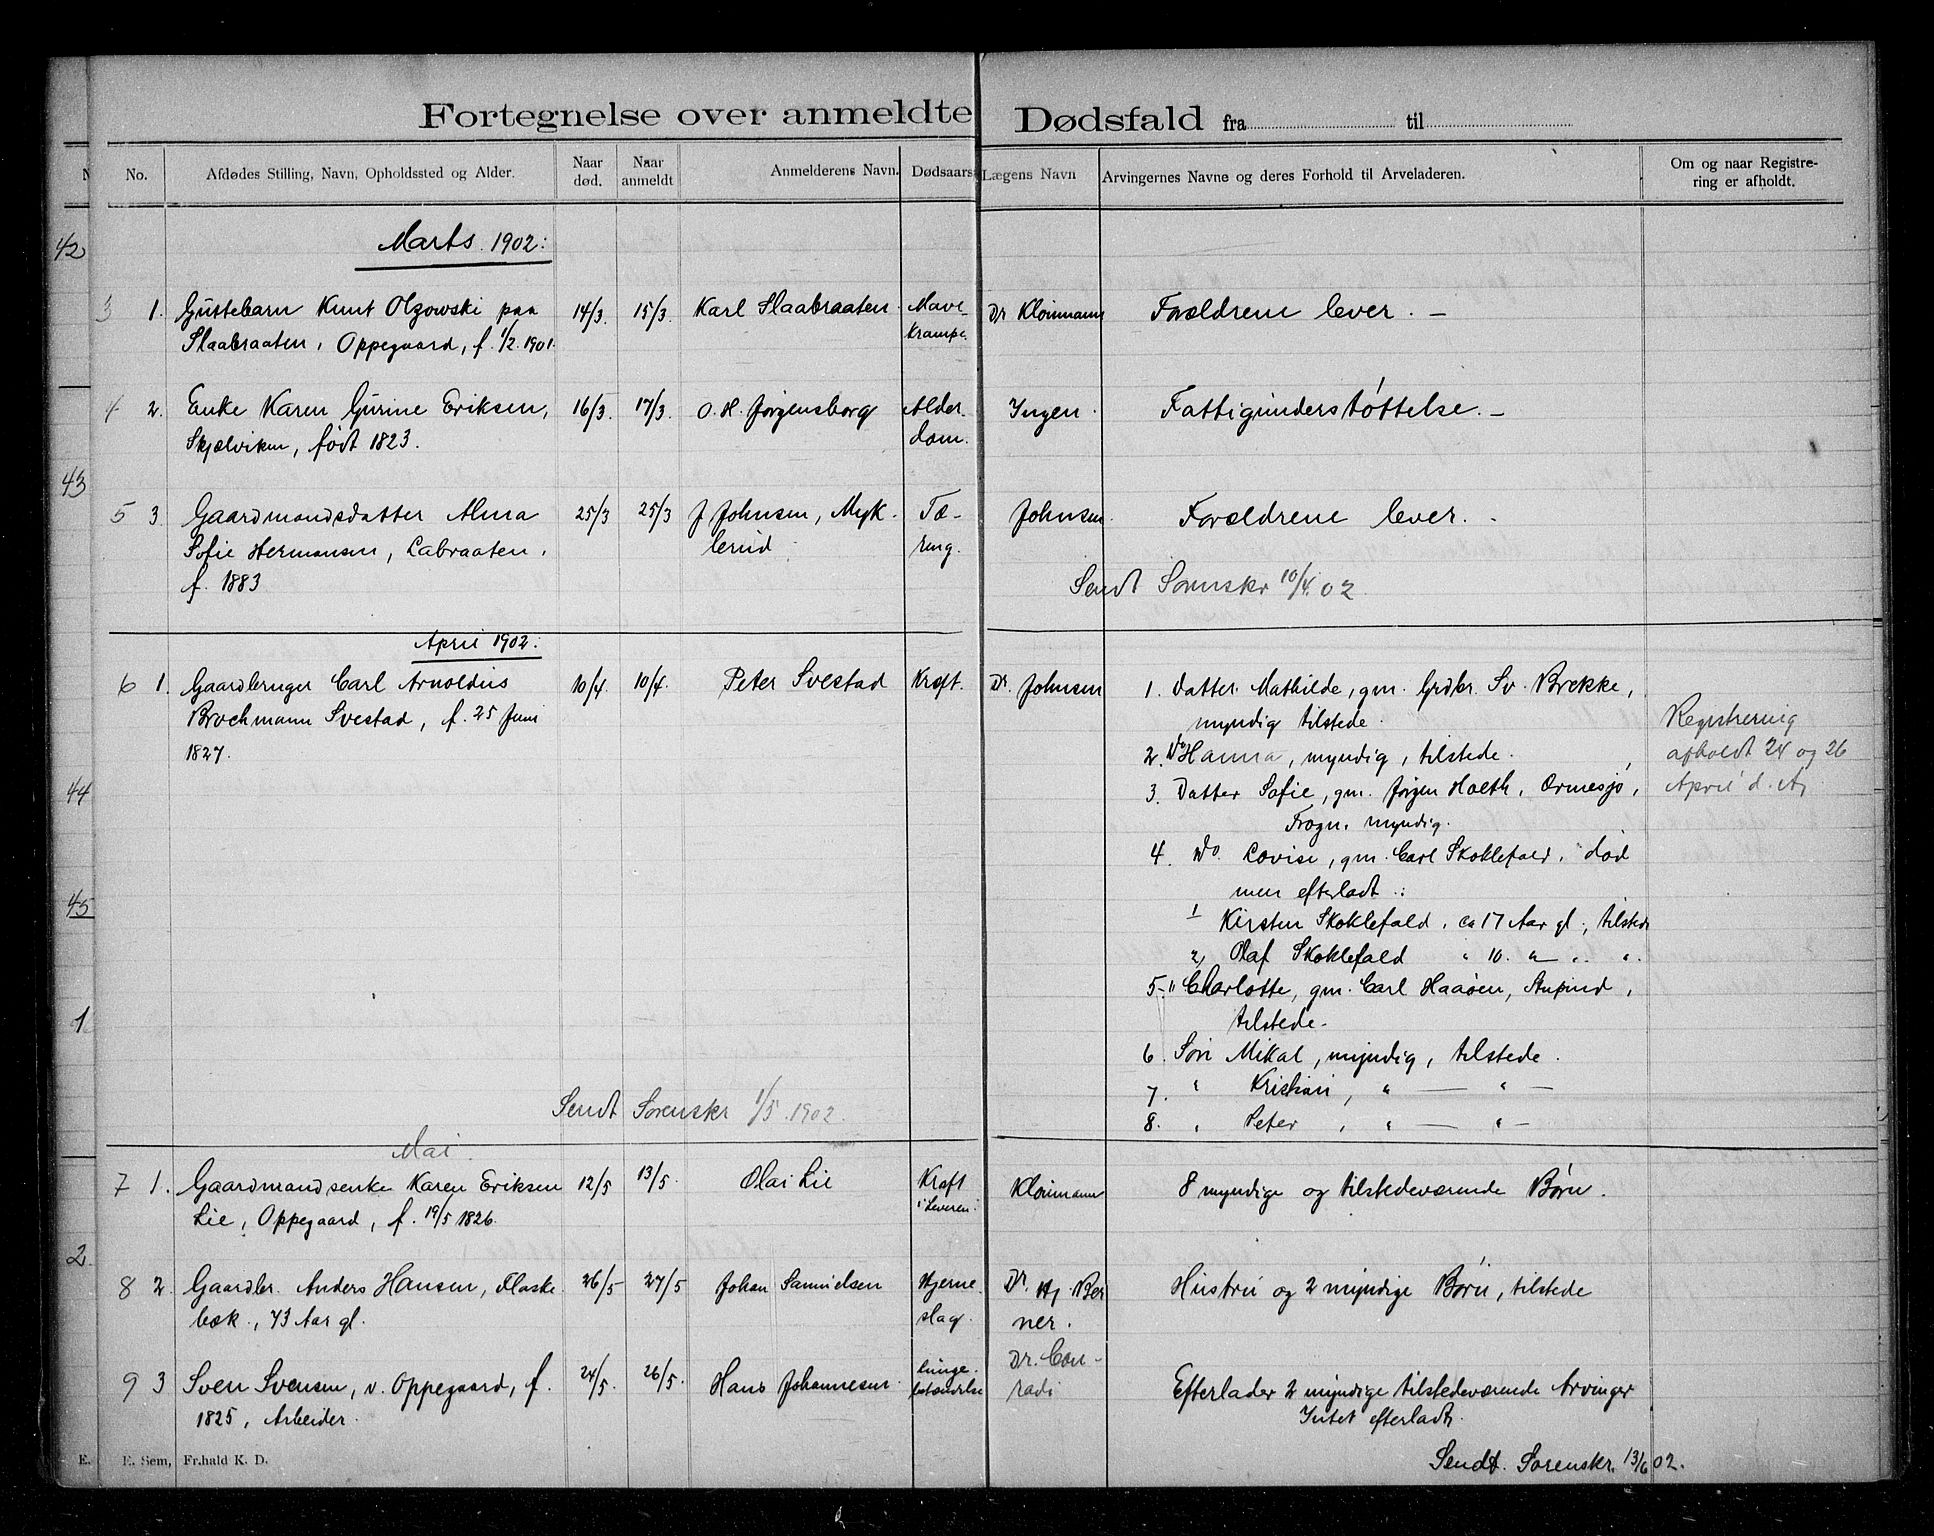 Fortegnelse over anmeldte Dødsfald fra til
No.
Afdødes Stilling, Navn, Opholdssted og Alder.
Naar
død.
Naar
anmeldt
Anmelderens Navn.
Dødsaars
Lægens Navn
Arvingernes Navne og deres Forhold til Arveladeren.
Om og naar Registre-
ring er afholdt.
42
43
44
45
1
2
Marts 1902:
3 1. Gustebarn Knut Olzowski paa
Slaabraaten, Oppegaard, f. 1/2 1901.
14/3. 15/3. Karl Slaabraaten.
Mave-
krampe.
Dr Kloumann
Forældrene lever. —
4 2. Enke Karen Gurine Eriksen,
Skjælviken, født 1823.
16/3. 17/3. O. H. Jørgensborg
Alder
dom.
Ingen.
Fattigunderstøttelse. —
5 3. Gaardmandsdatter Alma
Sofie Hermansen, Labraaten,
f. 1883
25/3 25/3 J Johnsen, Myk-
lerud
Tæ-
ring.
Johnsen.
Forældrene lever. -
Sendt Sorenskr 10/4 02
April 1902:
6 1. Gaardbruger Carl Arnoldus
Brochmann Svestad, f. 25 Juni
1827.
10/4. 10/4. Peter Svestad
Kræft.
Dr. Johnsen
1. Datter Mathilde, gm. Grdbr. Sv. Brekke,
myndig tilstede.
2. Do Hanna, myndig, tilstede.
3. Datter Sofie, gm. Jørgen Holth, Ormesjø,
Frogn, myndig.
4. Do. Lovise, gm. Carl Skoklefald, død
men efterladt:
1 Kirsten Skoklefald, ca 17 Aar gl., tilstede
2, Olaf Skoklefald " 10. " — " "
5. " Charlotte, gm. Carl Haaøen,
tilstede.
6. Søn Mikal, myndig, tilstede.
7. " Kristian, " — " —
8. " Peter, " — " —
Registrering
afholdt 24 og 26
April d. A.
Sendt Sorenskr 1/5. 1902.
Mai.
7 1. Gaardmandsenke Karen Eriksen
Lie, Oppegaard, f. 19/5 1826.
12/5 13/5. Olai Lie
Kræft
i Leveren.
Kloumann
8 myndige og tilstedeværende Børn.
8 2. Gaardbr. Anders Hansen, Flaske
bæk, 73 Aar gl.
26/5 27/5 Johan Samuelsen
Hjerne
slag.
Dr. Hj. Ber
ner.
Hustru og 2 myndige Børn, tilstede
9 3 Sven Svensen, v. Oppegaard, f.
1825, Arbeider.
24/5. 26/5. Hans Johannesen
Lunge-
betændelse
Dr. Con-
radi
Efterlader 2 myndige tilstedeværende Arvinger
Intet efterladt.
Sendt. Sorenskr. 13/6 02.
E. E. Sem, Fr.hald K. D.